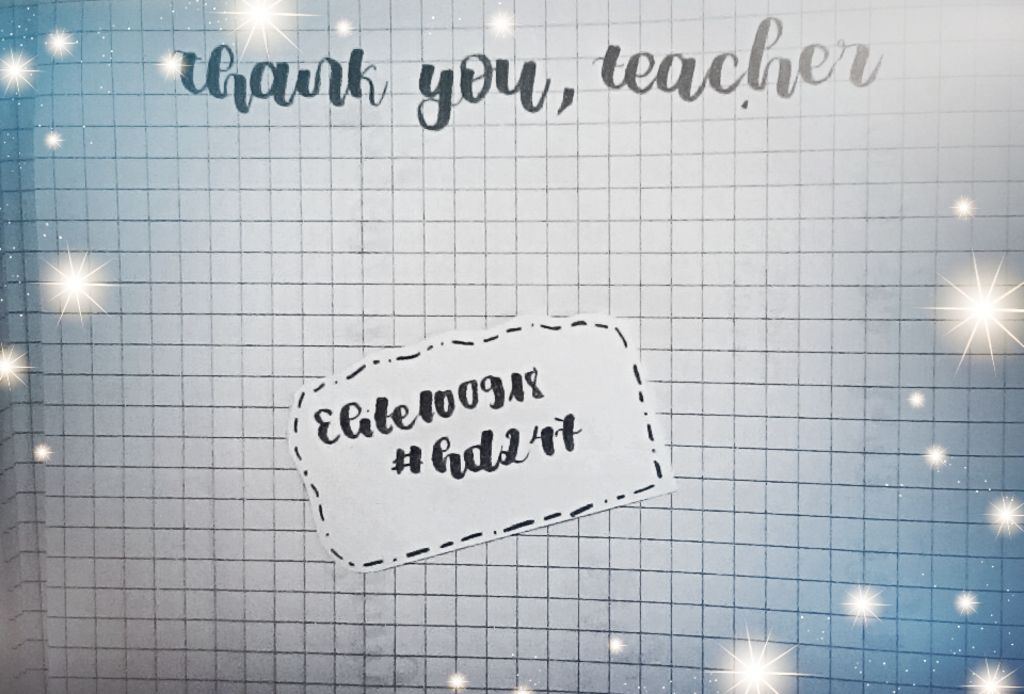 thank you, teacher
Elite100918
#hd247